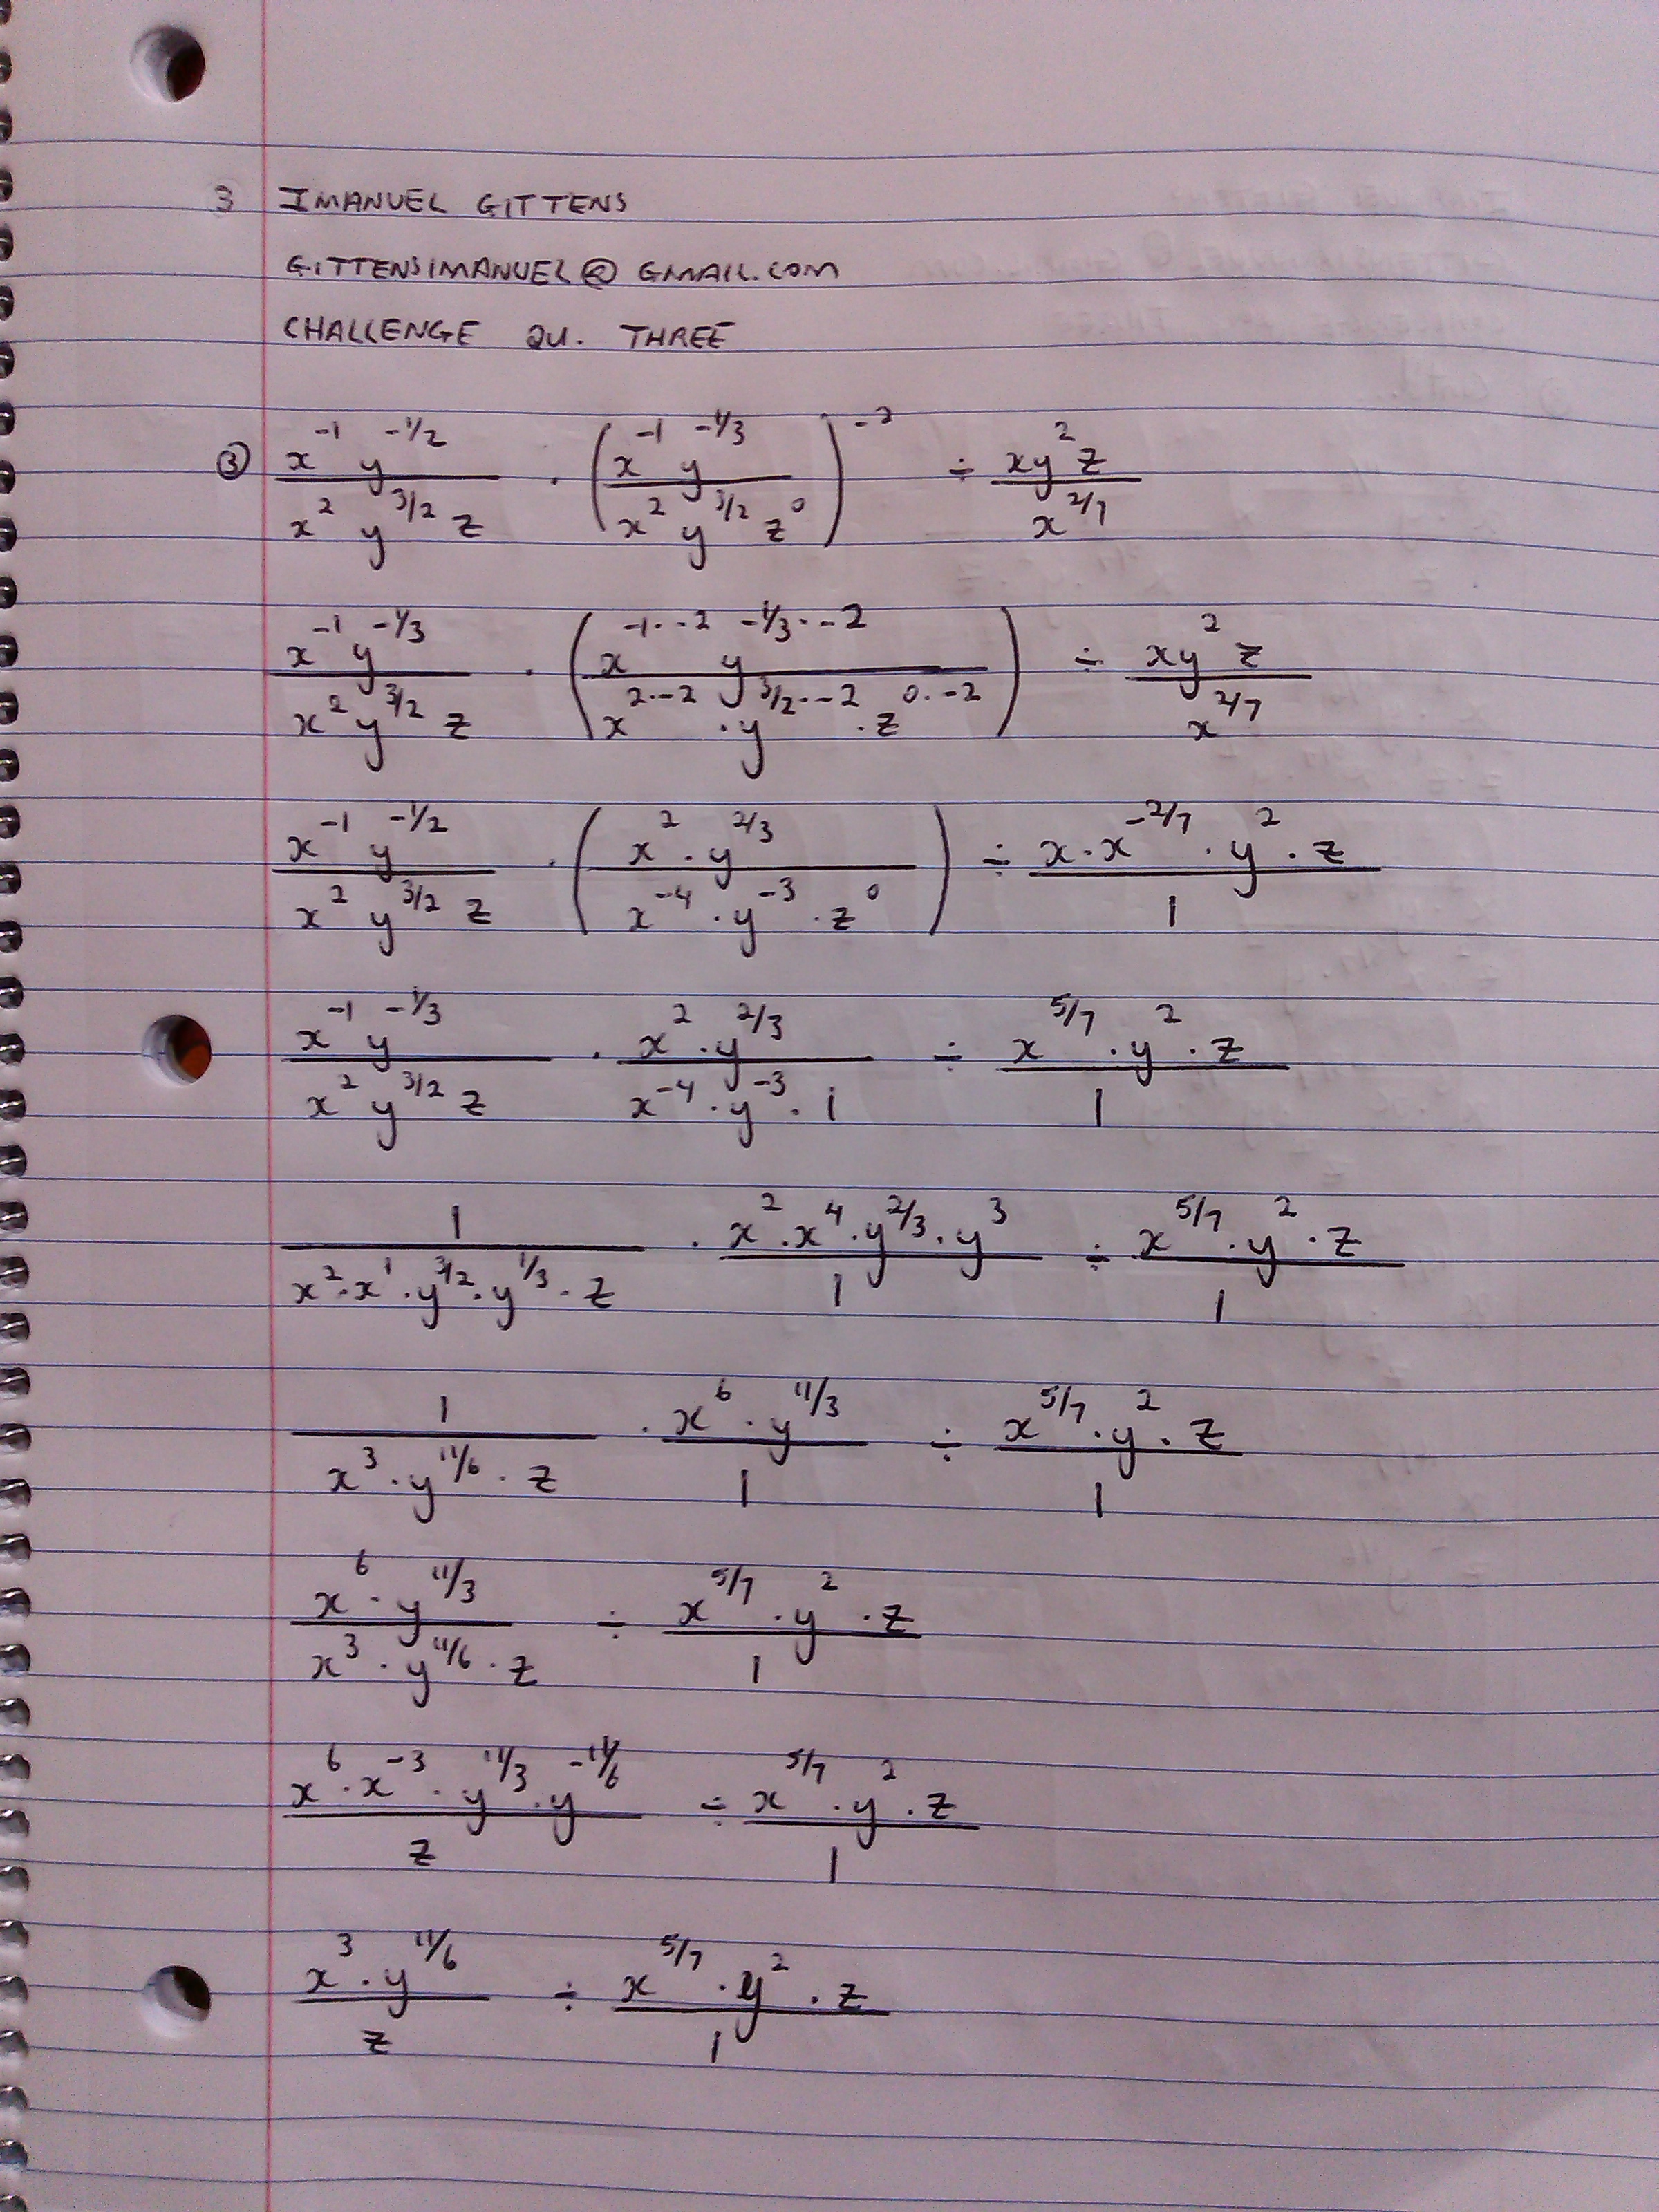 3 IMANUEL GITTENS
GITTENSIMANUEL@GMAIL.COM
CHALLENGE QU. THREE
③ x^-1 y^-1/2 / x^2 y^3/2 z · (x^-1 y^-1/3 / x^2 y^3/2 z^0)^-2 ÷ xy^2z / x^2/7
x^-1 y^-1/3 / x^2 y^3/2 z · (x^-1·-2 y^-1/3·-2 / x^2·-2 · y^3/2·-2 · z^0·-2) ÷ xy^2z / x^2/7
x^-1 y^-1/2 / x^2 y^3/2 z · (x^2 · y^2/3 / x^-4 · y^-3 · z^0) ÷ x · x^-2/7 · y^2 · z / 1
x^-1 y^-1/3 / x^2 y^3/2 z · x^2 · y^2/3 / x^-4 · y^-3 · 1 ÷ x^5/7 · y^2 · z / 1
1 / x^2 · x^1 · y^3/2 · y^1/3 · z · x^2 · x^4 · y^2/3 · y^3 / 1 ÷ x^5/7 · y^2 · z / 1
1 / x^3 · y^11/6 · z · x^6 · y^11/3 / 1 ÷ x^5/7 · y^2 · z / 1
x^6 · y^11/3 / x^3 · y^11/6 · z ÷ x^5/7 · y^2 · z / 1
x^6 · x^-3 · y^11/3 · y^-11/6 / z ÷ x^5/7 · y^2 · z / 1
x^3 · y^11/6 / z ÷ x^5/7 · y^2 · z / 1